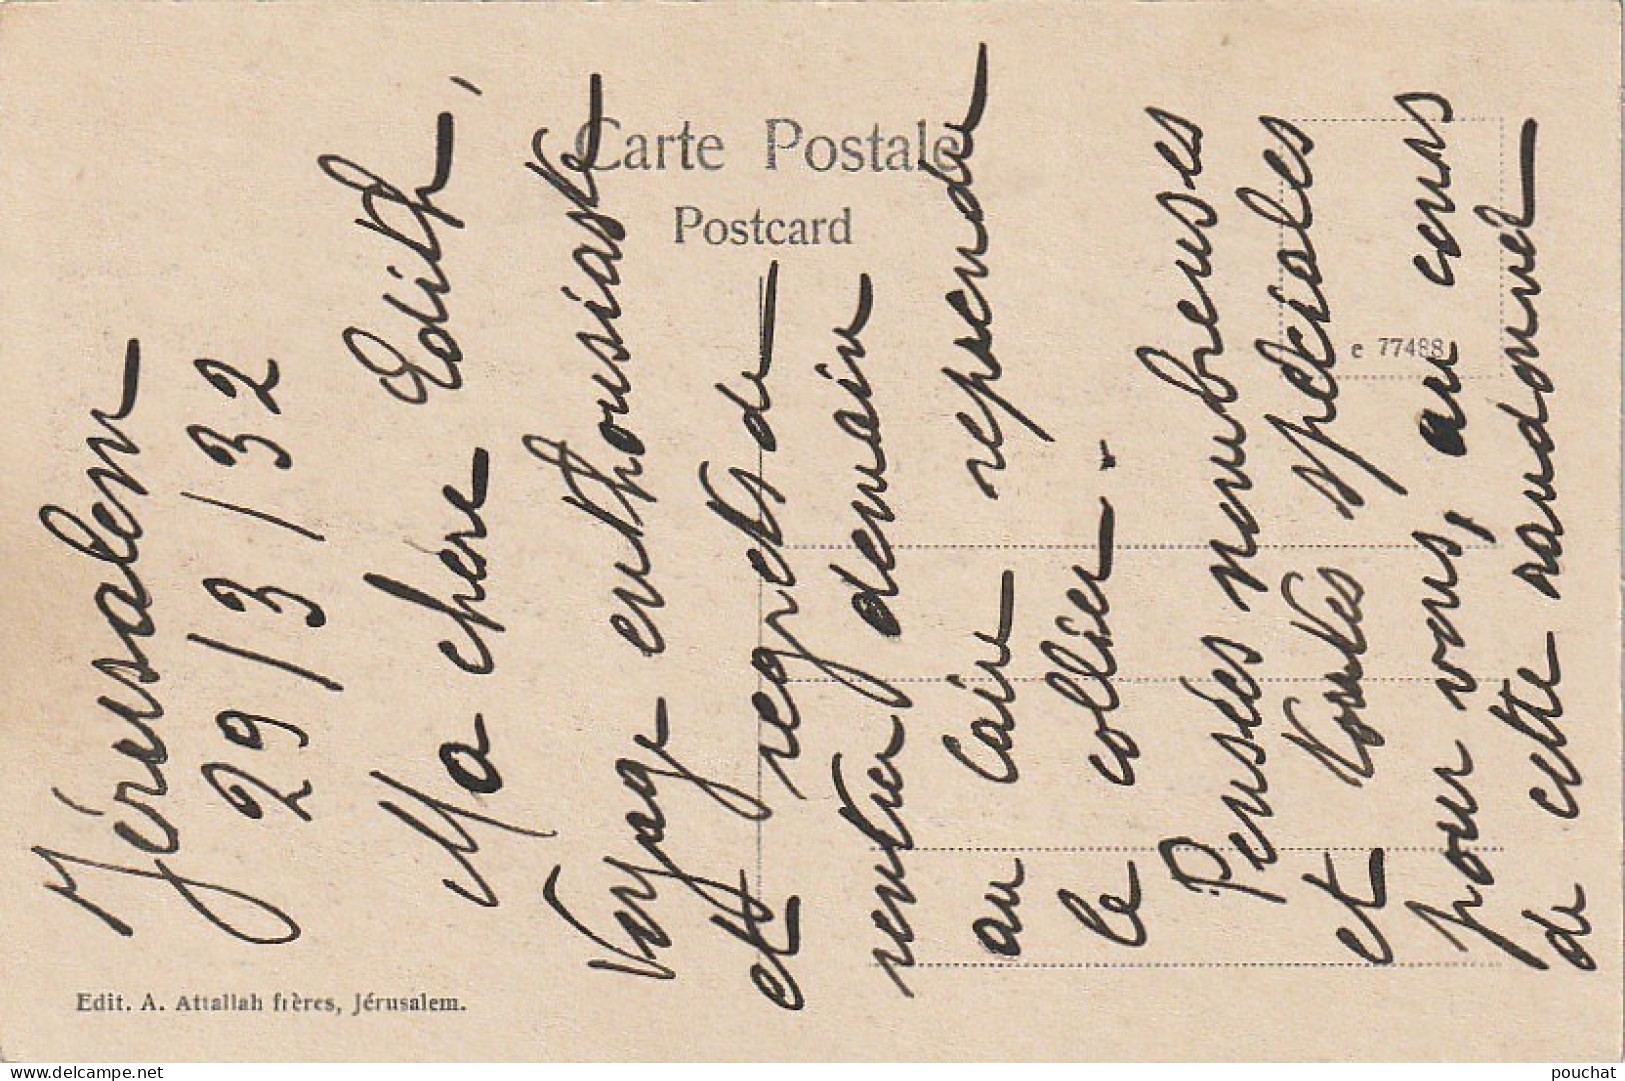 Carte Postale
Postcard
e 77488
Jérusalem
29/3/32
Ma chère Edith,
Voyage enthousiaste
et regrets de
rentrer demain
au Caire reprendre
le collier.
Pensées nombreuses
et toutes spéciales
pour vous, au cours
de cette randonnée
Edit. A. Attallah frères, Jérusalem.
delcampe.net
pouchat